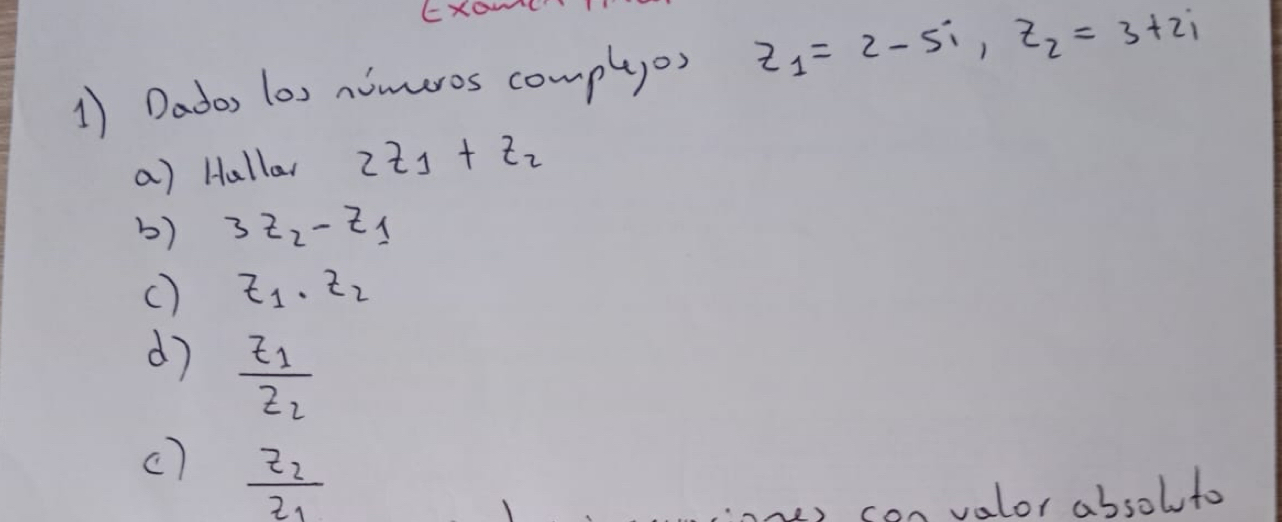 Examen
1) Dados los números complejos z₁ = 2 - 5i, z₂ = 3+2i
a) Hallar 2z₁ + z₂
b) 3z₂ - z₁
c) z₁ . z₂
d) z₁/z₂
e) z₂/z₁
con valor absoluto